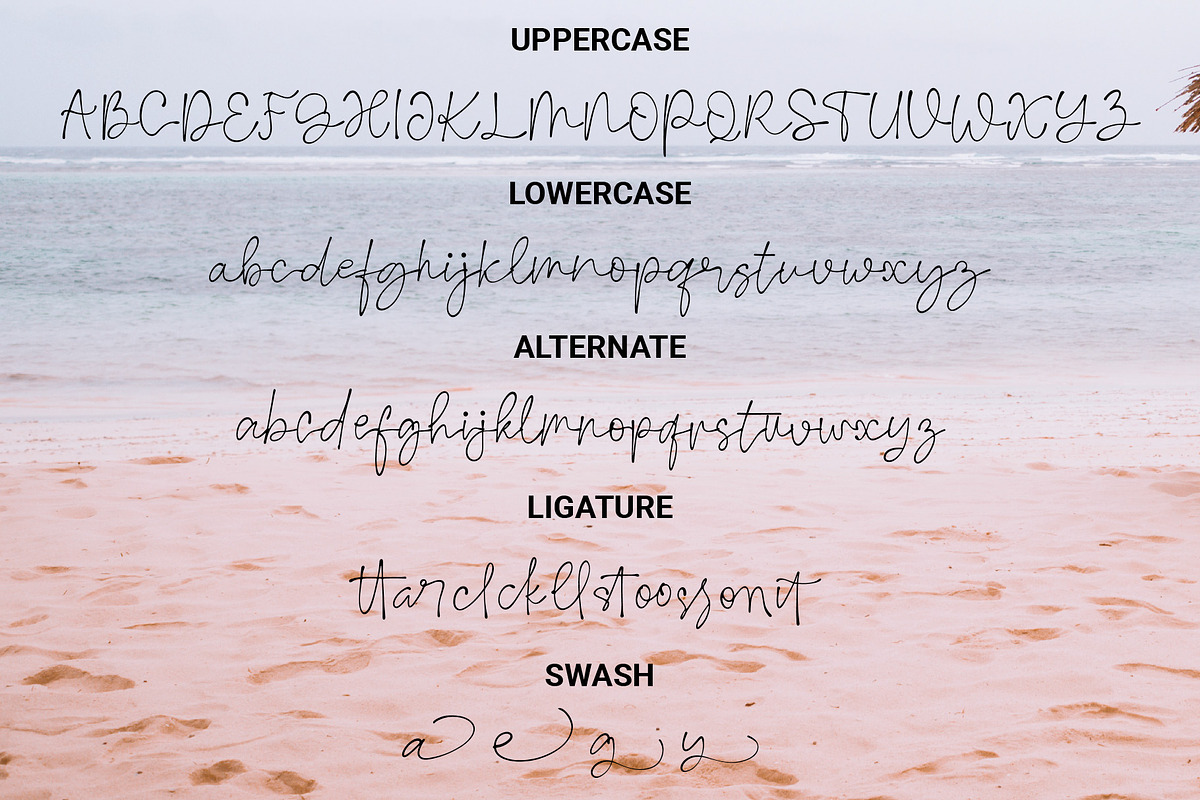 UPPERCASE
ABCDEFGHIJKLMNOPQRSTUVWXYZ
LOWERCASE
abcdefghijklmnopqrstuvwxyz
ALTERNATE
abcdefghijklmnopqrstuvwxyz
LIGATURE
ttarclckllstoossonit
SWASH
a e g y